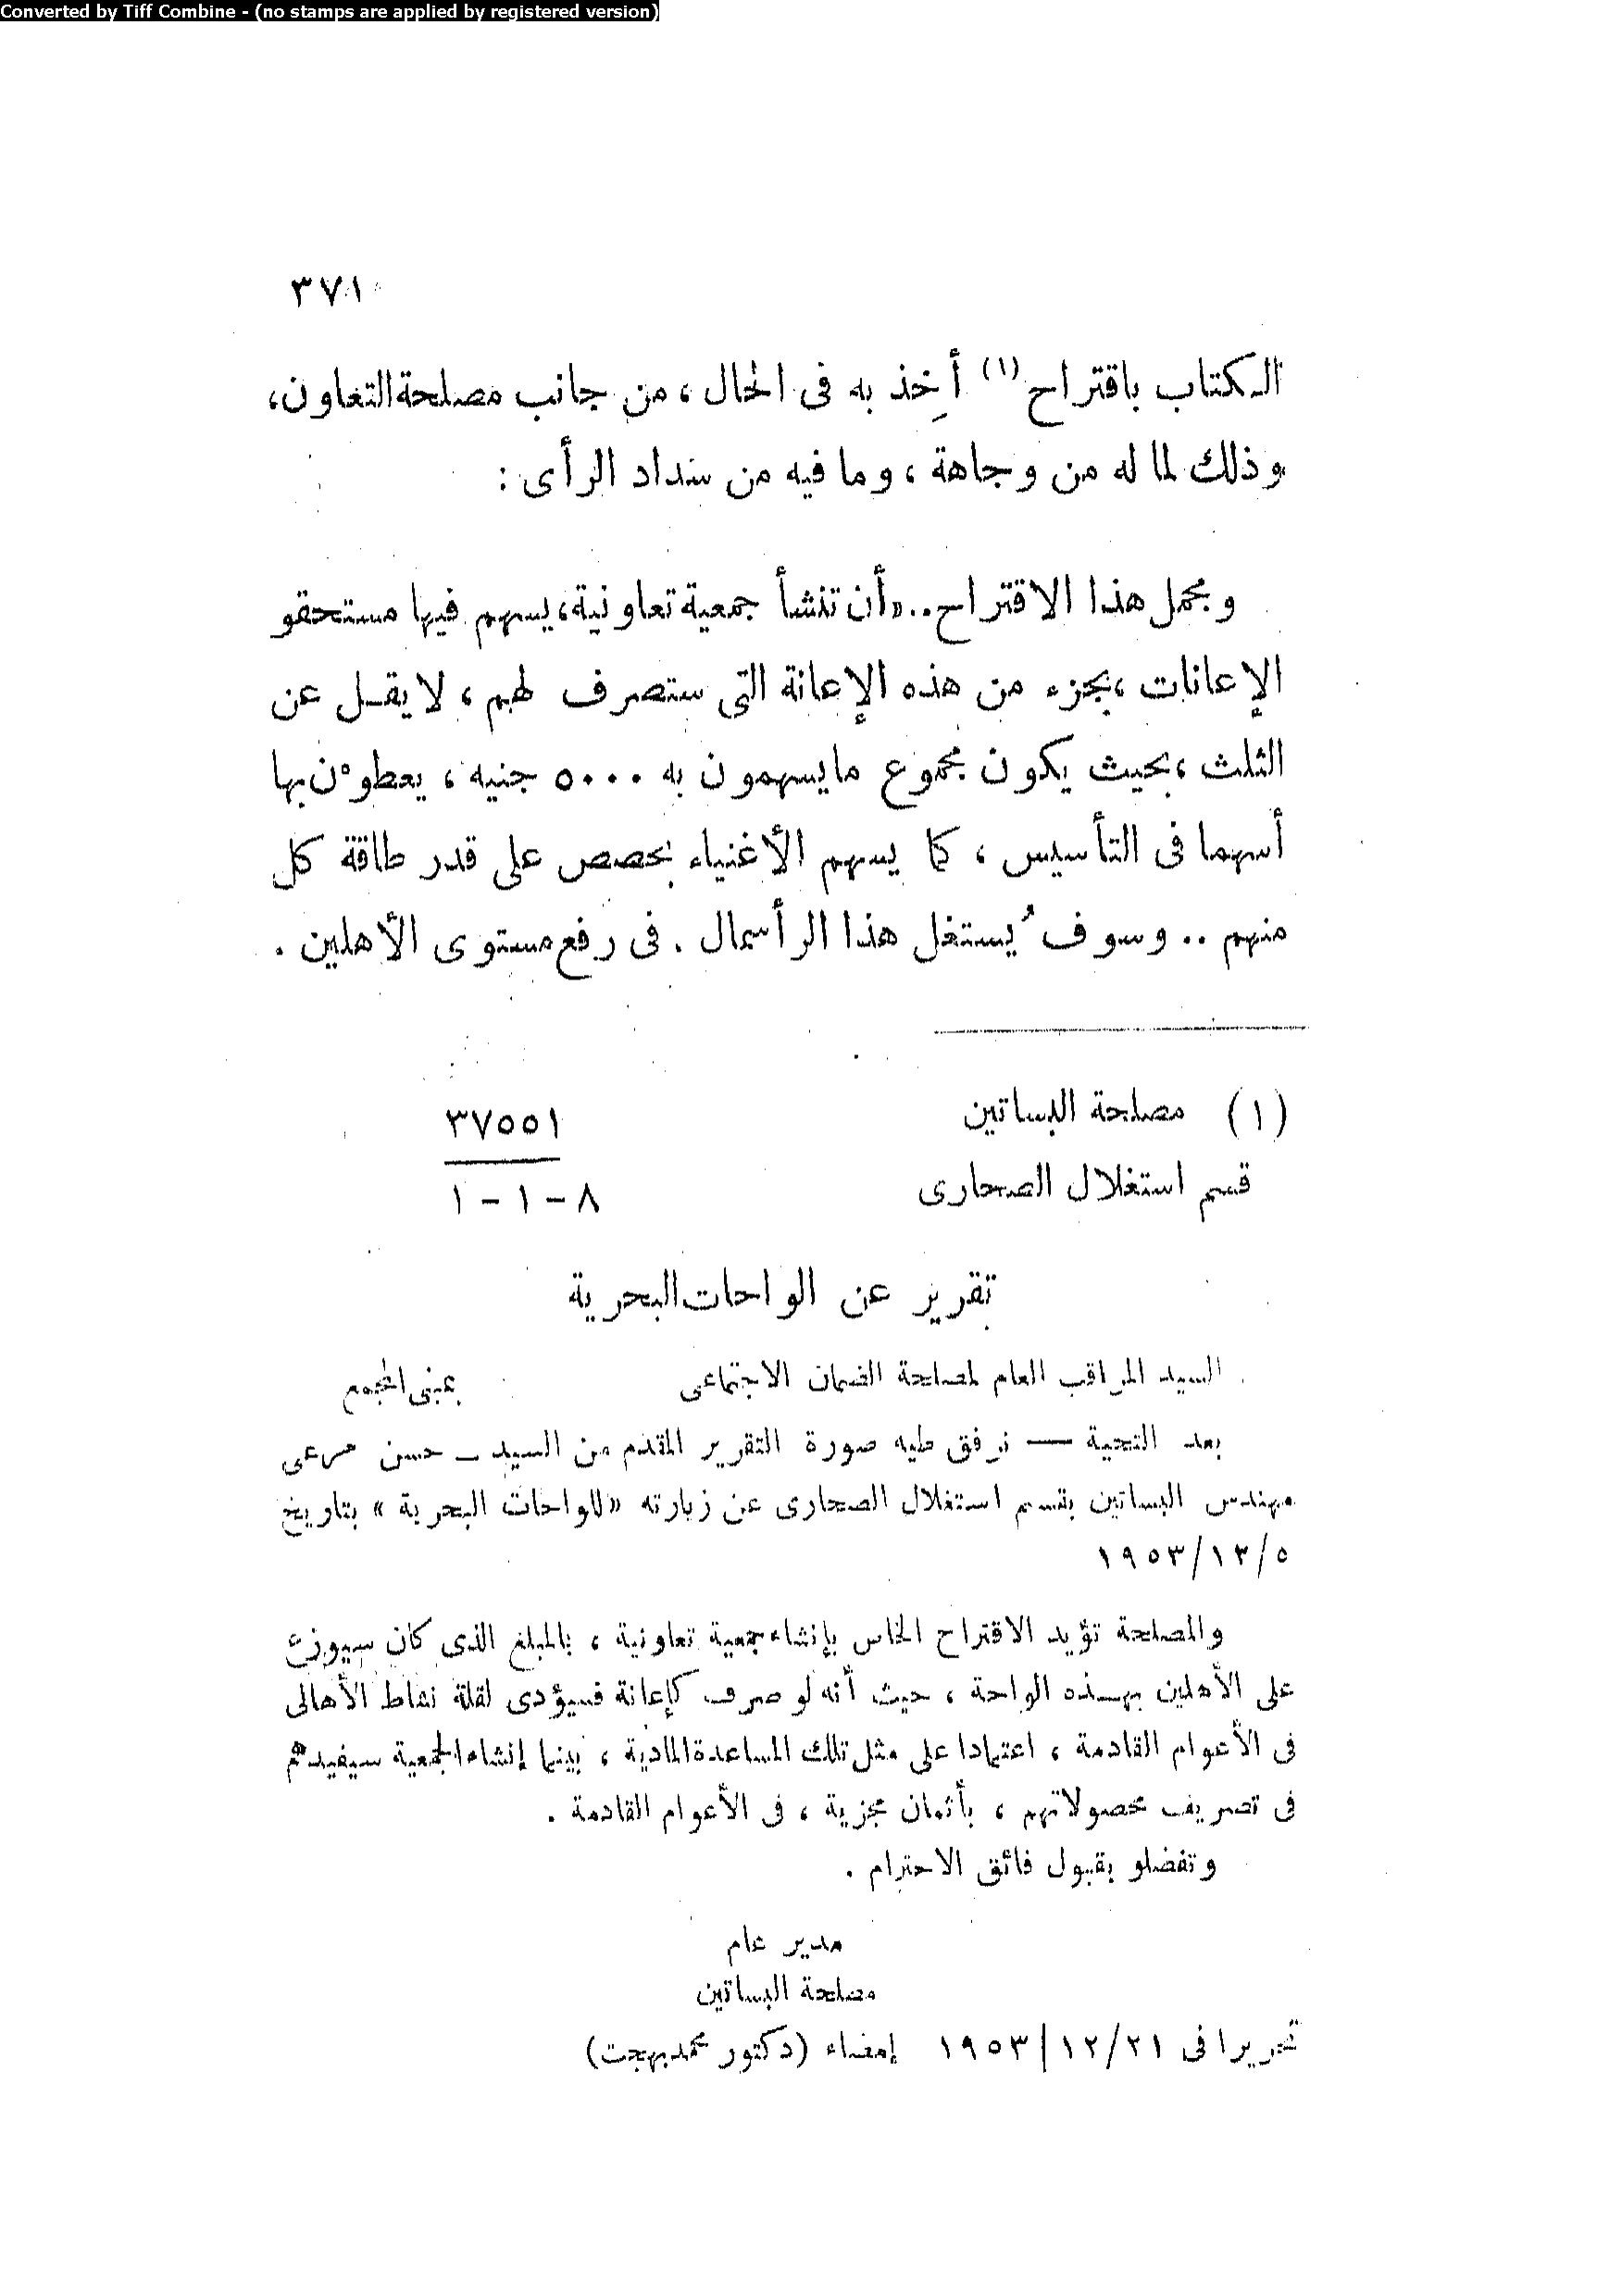 Converted by Tiff Combine - (no stamps are applied by registered version)
٣٧١
الكتاب باقتراح (١) أخِذ به فى الحال ، من جانب مصلحة التعاون،
وذلك لما له من وجاهة ، وما فيه من سداد الرأى :
ومجمل هذا الاقتراح.. «أن تنشأ جمعية تعاونية، يسهم فيها مستحقو
الإعانات ، بجزء من هذه الإعانة التى ستصرف لهم ، لا يقل عن
الثلث ، بحيث يكون مجموع ما يسهمون به ٥٠٠٠ جنيه ، يعطوْن بها
أسهما فى التأسيس ، كما يسهم الأغنياء بحصص على قدر طاقة كل
منهم .. وسوف يُستغل هذا الرأسمال . فى رفع مستوى الأهلين .
(١) مصلحة البساتين ٣٧٥٥١
قسم استغلال الصحارى ٨ - ١ - ١
تقرير عن الواحات البحرية
السيد المراقب العام لمصلحة الضمان الاجتماعى بمبنى المجمع
بعد التحية — نرفق طيه صورة التقرير المقدم من السيد - حسن مرعى
مهندس البساتين بقسم استغلال الصحارى عن زيارته «للواحات البحرية» بتاريخ
٥/١٢/١٩٥٣
والمصلحة تؤيد الاقتراح الخاص بإنشاء جمعية تعاونية ، بالمبلغ الذى كان سيوزع
على الأهلين بهذه الواحة ، حيث أنه لو صرف كإعانة فسيؤدى لقلة نشاط الأهالى
فى الأعوام القادمة ، اعتمادا على مثل تلك المساعدة المادية ، بينما إنشاء الجمعية سيفيدهم
فى تصريف محصولاتهم ، بأثمان مجزية ، فى الأعوام القادمة .
وتفضلو بقبول فائق الاحترام .
مدير عام
مصلحة البساتين
تحريرا فى ٢١/١٢/١٩٥٣ إمضاء (دكتور محمد بهجت)